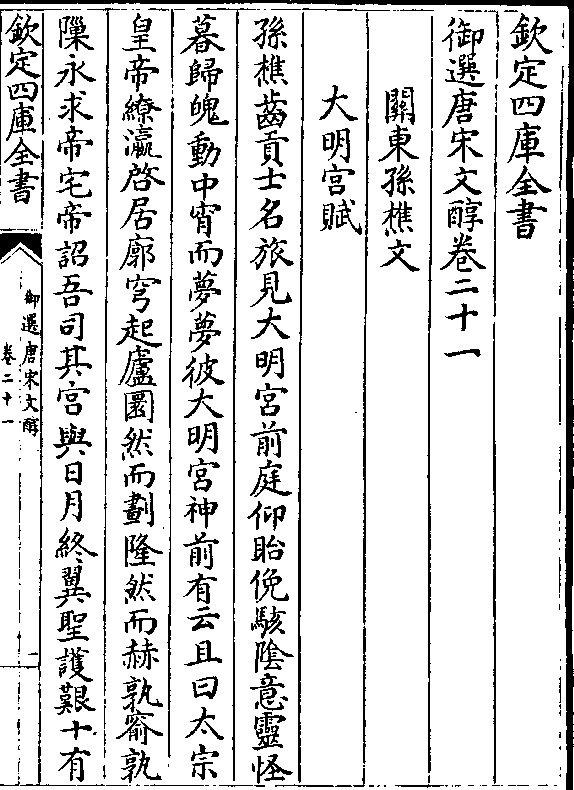 欽定四庫全書
御選唐宋文醇卷二十一
關東孫樵文
大明宮賦
孫樵齒貢士名旅見大明宮前庭仰眙俛駭陰意靈怪
暮歸魄動中宵而夢夢彼大明宮神前有云且曰太宗
皇帝繚瀛啓居廓穹起廬圜然而劃隆然而赫孰窬孰
隟永求帝宅帝詔吾司其宮與日月終翼聖護艱十有
欽定四庫全書
御選唐宋文醇
卷二十一
一